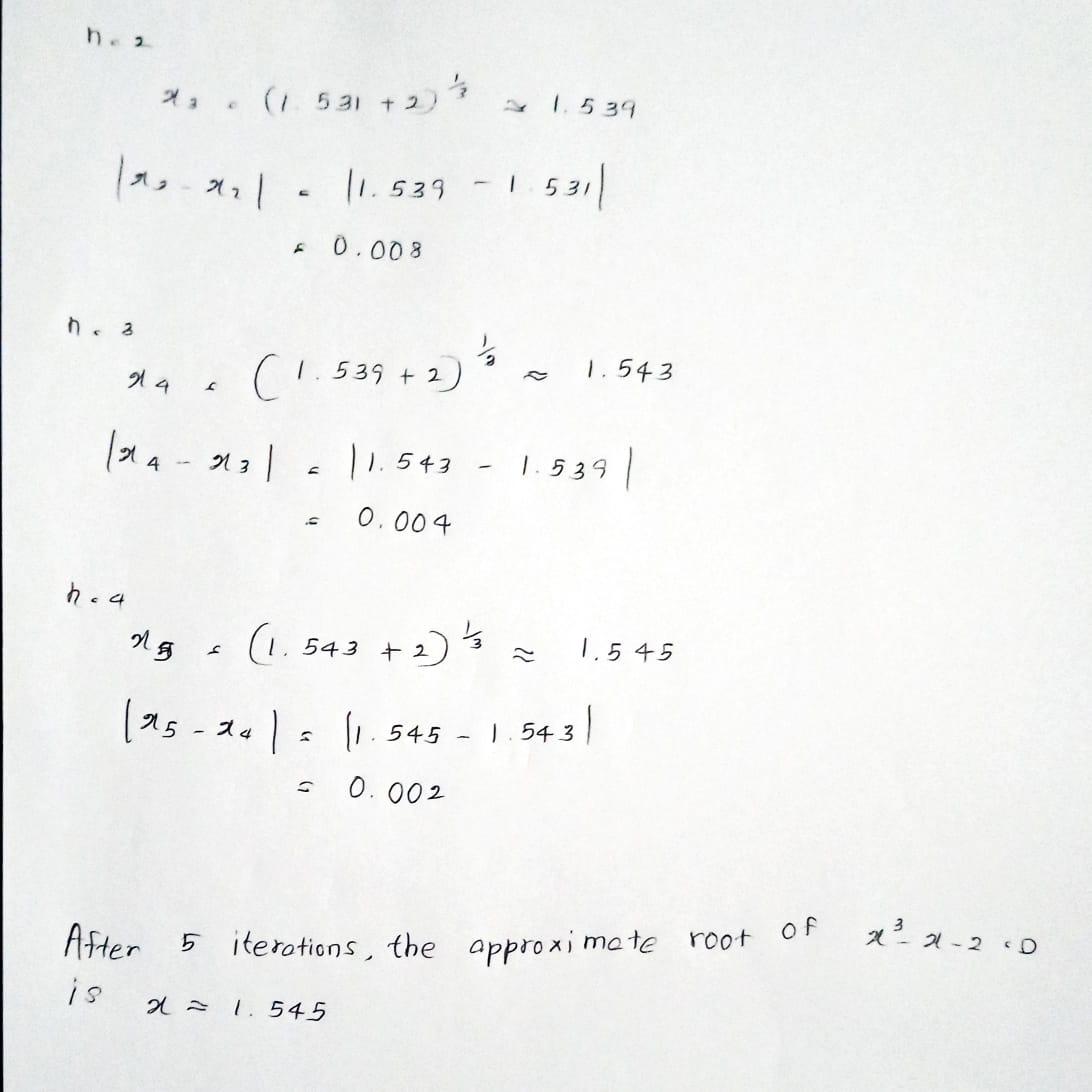 n = 2
x₃ = (1.531 + 2)^(1/3) ≈ 1.539
|x₃ - x₂| = |1.539 - 1.531|
= 0.008
n = 3
x₄ = (1.539 + 2)^(1/3) ≈ 1.543
|x₄ - x₃| = |1.543 - 1.539|
= 0.004
n = 4
x₅ = (1.543 + 2)^(1/3) ≈ 1.545
|x₅ - x₄| = |1.545 - 1.543|
= 0.002
After 5 iterations, the approximate root of x³ - x - 2 = 0
is x ≈ 1.545